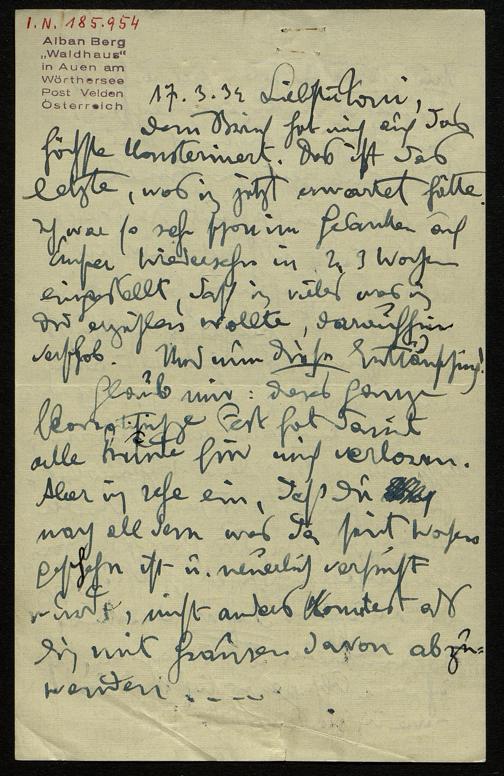 I.N. 185.954
Alban Berg
„Waldhaus“
in Auen am
Wörthersee
Post Velden
Österreich
17. 3. 34 Liebste
Dein Brief hat mich auf das
höchste konsterniert. Das ist das
letzte, was ich jetzt erwartet hätte.
Ich war so sehr schon im Gedanken auf
unser Wiedersehn in 2, 3 Wochen
eingestellt, daß ich vieles was ich
Dir erzählen wollte, daraufhin
verschob. Und nun diese Enttäuschung!
Glaub mir: das ganze
Fest hat damit
alle für mich verloren.
Aber ich sehe ein, daß Du
nach all dem was da seit Wochen
geschehn ist u. neuerlich verschärft
wurde, nicht anders konntest als
Dich mit Grausen davon abzu-
wenden . . . .